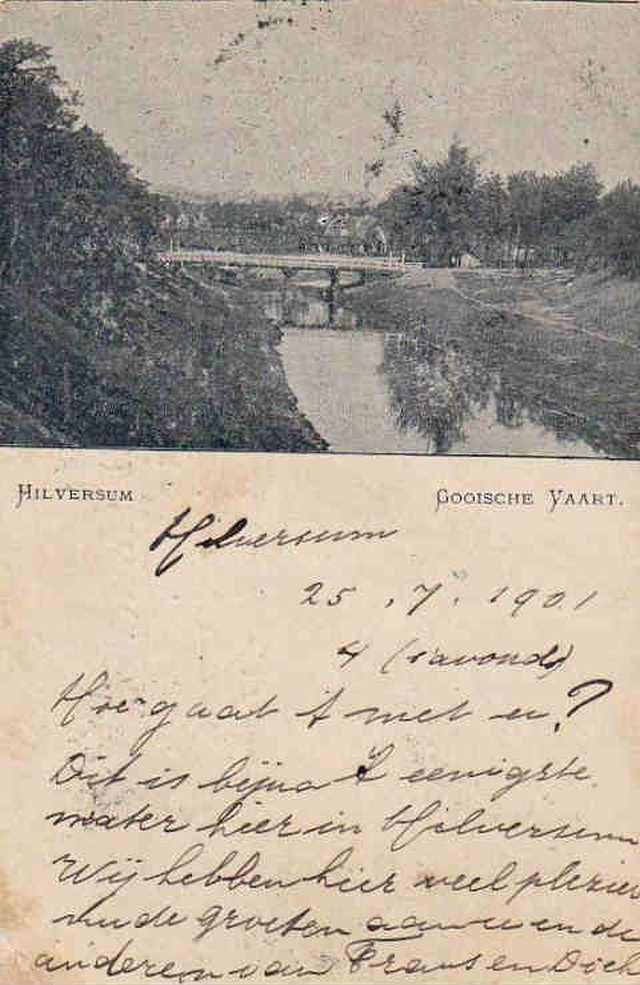 HILVERSUM GOOISCHE VAART.
Hilversum
25.7.1901
4 (s'avonds)
Hoe gaat 't met u?
Dit is bijna 't eenigste
water hier in Hilversum
Wij hebben hier veel plezier
nu de groeten aan u en de
anderen van Frans en Dick